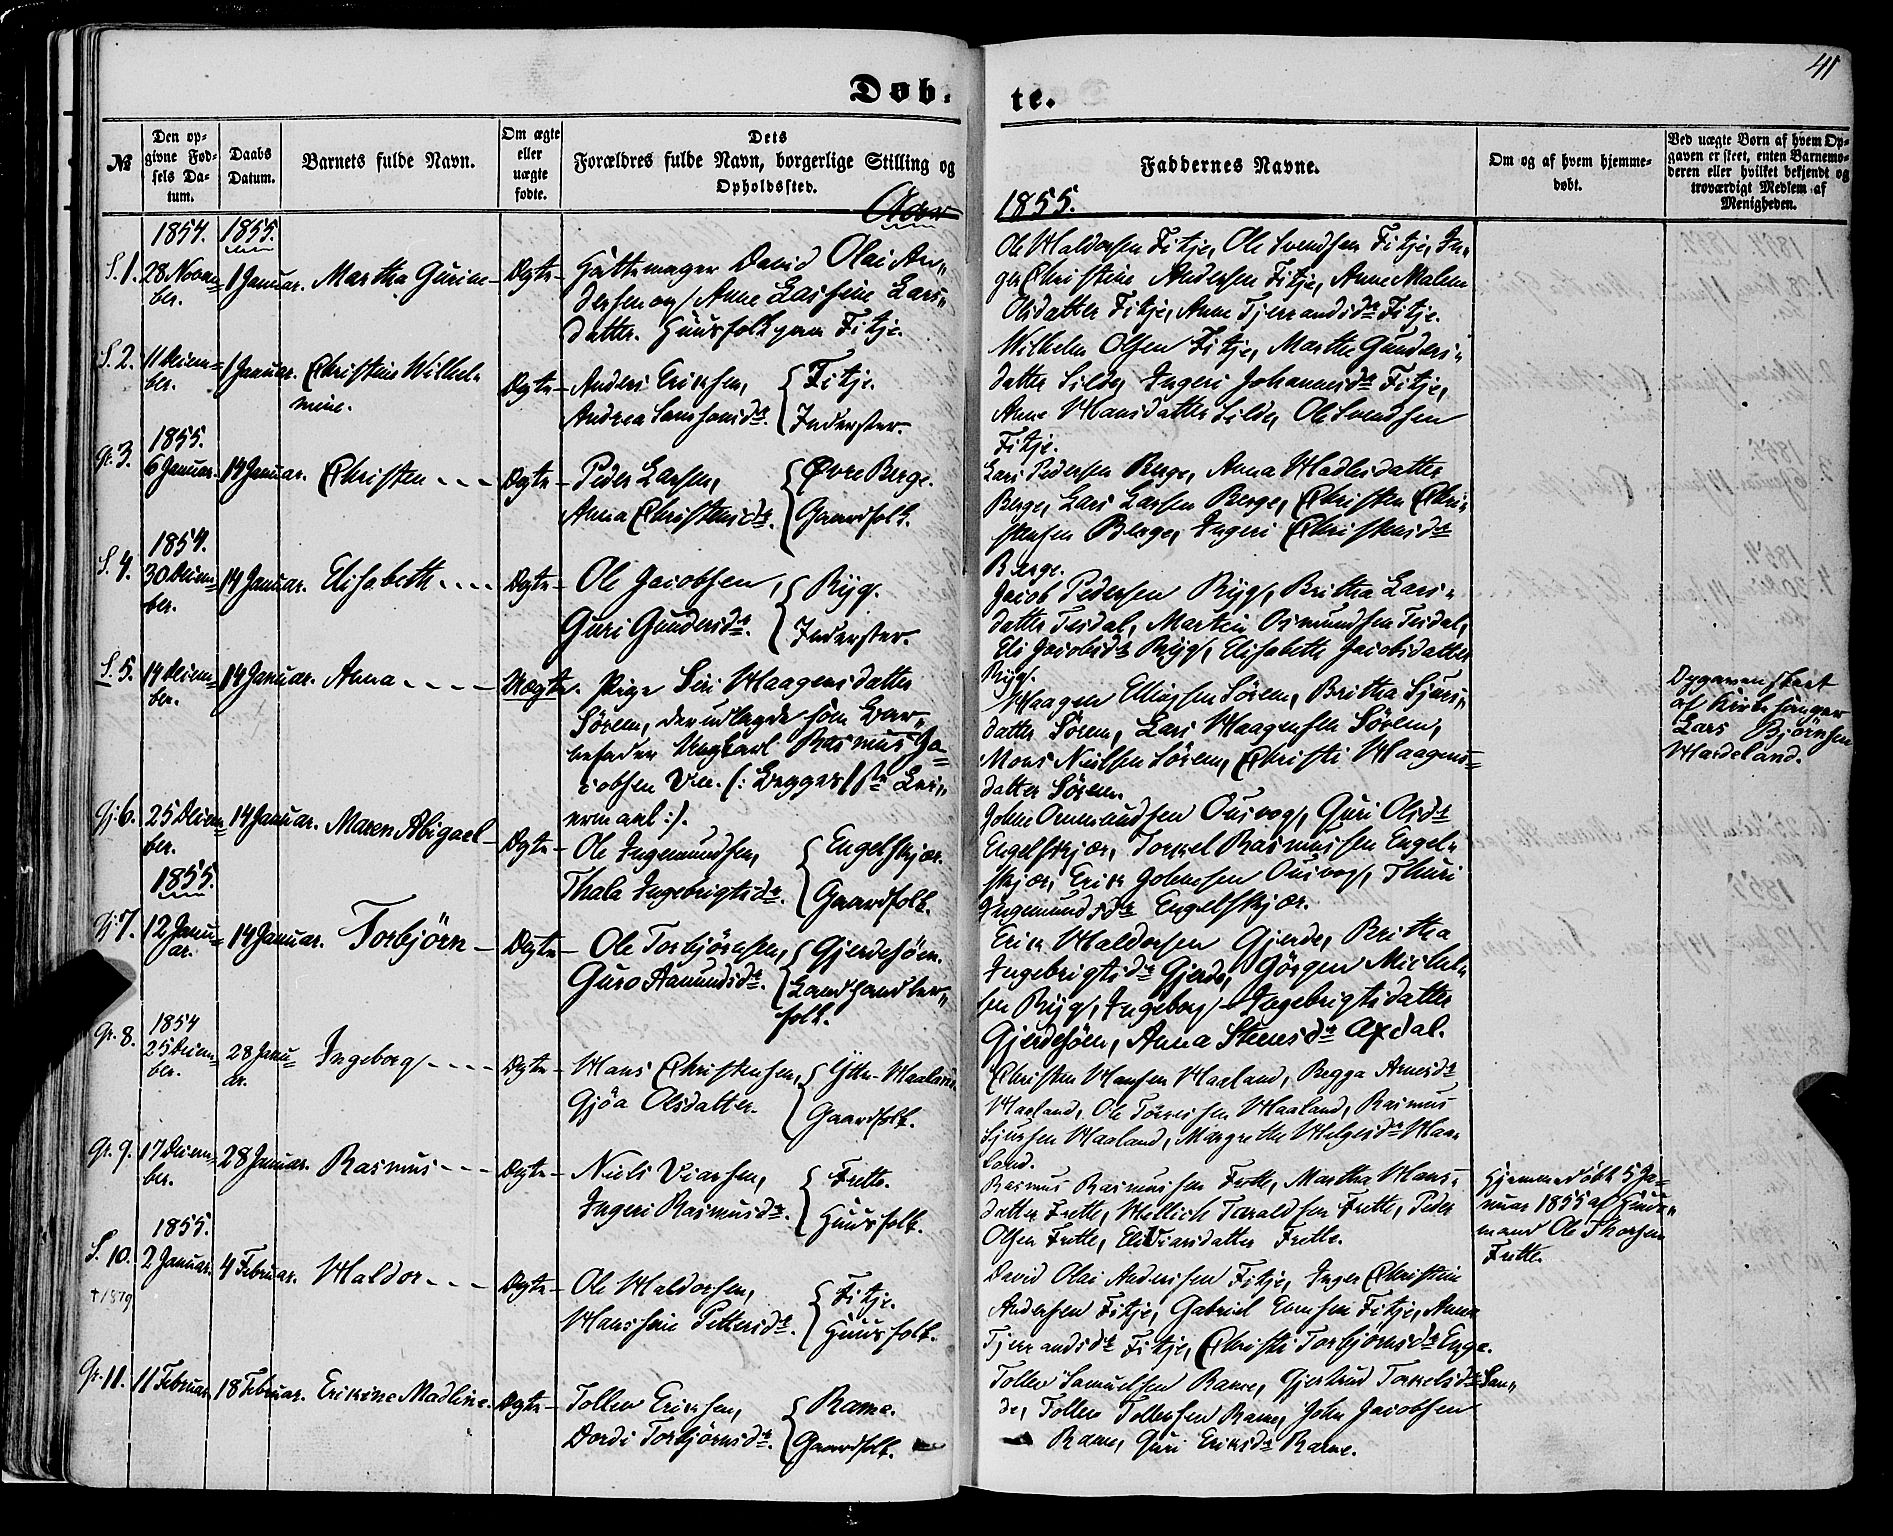 41
Døb-
te.
№
Den op-
givne Fød-
sels Da-
tum.
Daabs
Datum.
Barnets fulde Navn.
Om ægte
eller
uægte
fødte.
Dets
Forældres fulde Navn, borgerlige Stilling og
Opholdssted.
Faddernes Navne.
Om og af hvem hjemme-
døbt.
Ved uægte Børn af hvem Op-
gaven er skeet, enten Barnemo-
deren eller hvilket bekjendt og
troværdigt Medlem af
Menigheden.
1855.
1854.
1855.
S. 1.
28 Novem-
ber.
1 Januar.
Martha Gurine
Ægte
Hattemager David Olai An-
dersen og Anne
Lars-
datter. Huusfolk paa Fitje.
Ole Haldorsen Fitje, Ole Svendsen Fitje, In-
ger Christine Andersen Fitje, Anne Malene
Olsdatter Fitje, Anne Tjerrandsdr Fitje.
S. 2.
11 Decem-
ber.
1 Januar.
Christine Wilhel-
mine.
Ægte
Anders Eriksen,
Andrea Samsonsdr.
Fitje.
Inderster.
Wilhelm Olsen Fitje, Marthe Gunders-
datter Silde, Ingeri Johannesdr Fitje,
Anne Hansdatter Silde, Ole Svendsen
Fitje.
Gr. 3.
1855.
6 Januar.
14 Januar.
Christen
Ægte
Peder Larsen,
Anna Christensdr.
Øvre Berge.
Gaardfolk.
Lars Pedersen Berge, Anna Hadlesdatter
Berge, Lars Larsen Berge, Christen Chri-
stensen Berge, Ingeri Christensdr
Berge.
S. 4.
1854.
30 Decem-
ber.
14 Januar.
Elisabeth
Ægte
Ole Jacobsen,
Guri Gundersdr.
Ryg.
Inderster.
Jacob Pedersen Ryg, Britha Lars-
datter Tesdal, Martin Osmundsen Tesdal,
Eli Jacobsdr Ryg, Elisabeth Jacobsdatter
Ryg.
S. 5.
14 Decem-
ber.
14 Januar.
Anna
Uægte.
Pige Siri Haagensdatter
Søreem, der udlagde som Bar-
nefader Ungkarl Rasmus Ja-
cobsen Vee.
Haagen Ellingsen Sørem, Britha Sjurs-
datter Sørem, Lars Haagensen Sørem,
Mons Nielsen Sørem, Christi Haagens-
datter Sørem.
Opgaven skeet
af Kirkesanger
Lars Bjørnsen
Hardeland.
Gj. 6.
25 Decem-
ber.
14 Januar.
Maren Abigael
Ægte
Ole Ingemundsen,
Thala Ingebrigtsdr.
Engelskjær.
Gaardfolk.
John Ommundsen Ousvog, Guri Olsdr
Engelskjær, Torkel Rasmussen Engel-
skjær, Erik Johnsen Ousvog, Thuri
Ingemundsdr Engelskjær.
1855.
Gj. 7.
12 Janu-
ar.
14 Januar.
Torbjörn
Ægte
Ole Torbjörnsen,
Guro Aamundsdr.
Gjerdesjøen.
Landhandler-
folk.
Erik Haldorsen Gjerde, Britha
Ingebrigtsdr Gjerde, Görgen Michel-
sen Ryg, Ingeborg Ingebrigtsdatter
Gjerdesjøen, Anna Steensdr Axdal.
Gr. 8.
1854
25 Decem-
ber.
28 Janu-
ar.
Ingeborg
Ægte
Hans Christensen,
Gjöa Olsdatter.
Ytre-Haaland.
Gaardfolk.
Christen Hansen Haaland, Begga Arnesdr
Haaland, Ole Tørresen Haaland, Rasmus
Sjursen Haaland, Margrethe Helgesdr Haa-
land.
Gr. 9.
17 Decem-
ber.
28 Januar.
Rasmus
Ægte
Niels Viarsen,
Ingeri Rasmusdr.
Frette.
Huusfolk.
Rasmus Rasmussen Frette, Martha Hans-
datter Frette, Mellich Taraldsen Frette, Peder
Olsen Frette, Eli Viarsdatter Frette.
Hjemmedøbt 5 Ja-
nuar 1855 af
mand Ole Thorsen
Frette.
1855.
S. 10.
† 1879
2 Januar.
4 Februar.
Haldor
Ægte
Ole Haldorsen,
Hansine Pettersdr.
Fitje.
Huusfolk.
David Olai Andersen Fitje, Inger Christine
Andersen Fitje, Gabriel
Fitje, Anna
Tjerrandsdr Fitje, Christi Torbjørnsdr Enge.
Gr. 11.
11 Februar.
18 Februar.
Erikine Madline.
Ægte
Tollev Eriksen,
Dordi Torbjörnsdr.
Rame.
Gaardfolk.
Tollev Samuelsen Rame, Gjertrud Torkelsdr San-
de, Tollev Tollevsen Rame, John Jacobsen
Rame, Guri Eriksdr Rame.